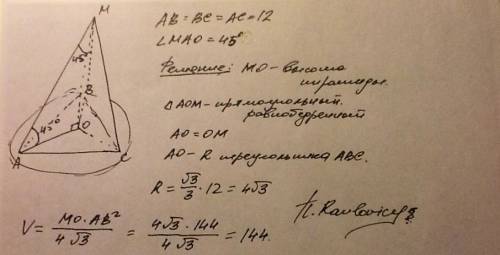 M
45°
B
45°
O
A
C
AB = BC = AC = 12
∠MAO = 45°
Решение: MO – высота
пирамиды.
△AOM – прямоугольный.
равнобедренный
AO = OM
AO – R треугольника ABC.
R = √3/3 · 12 = 4√3
V = MO · AB²/4√3 = 4√3 · 144/4√3 = 144.